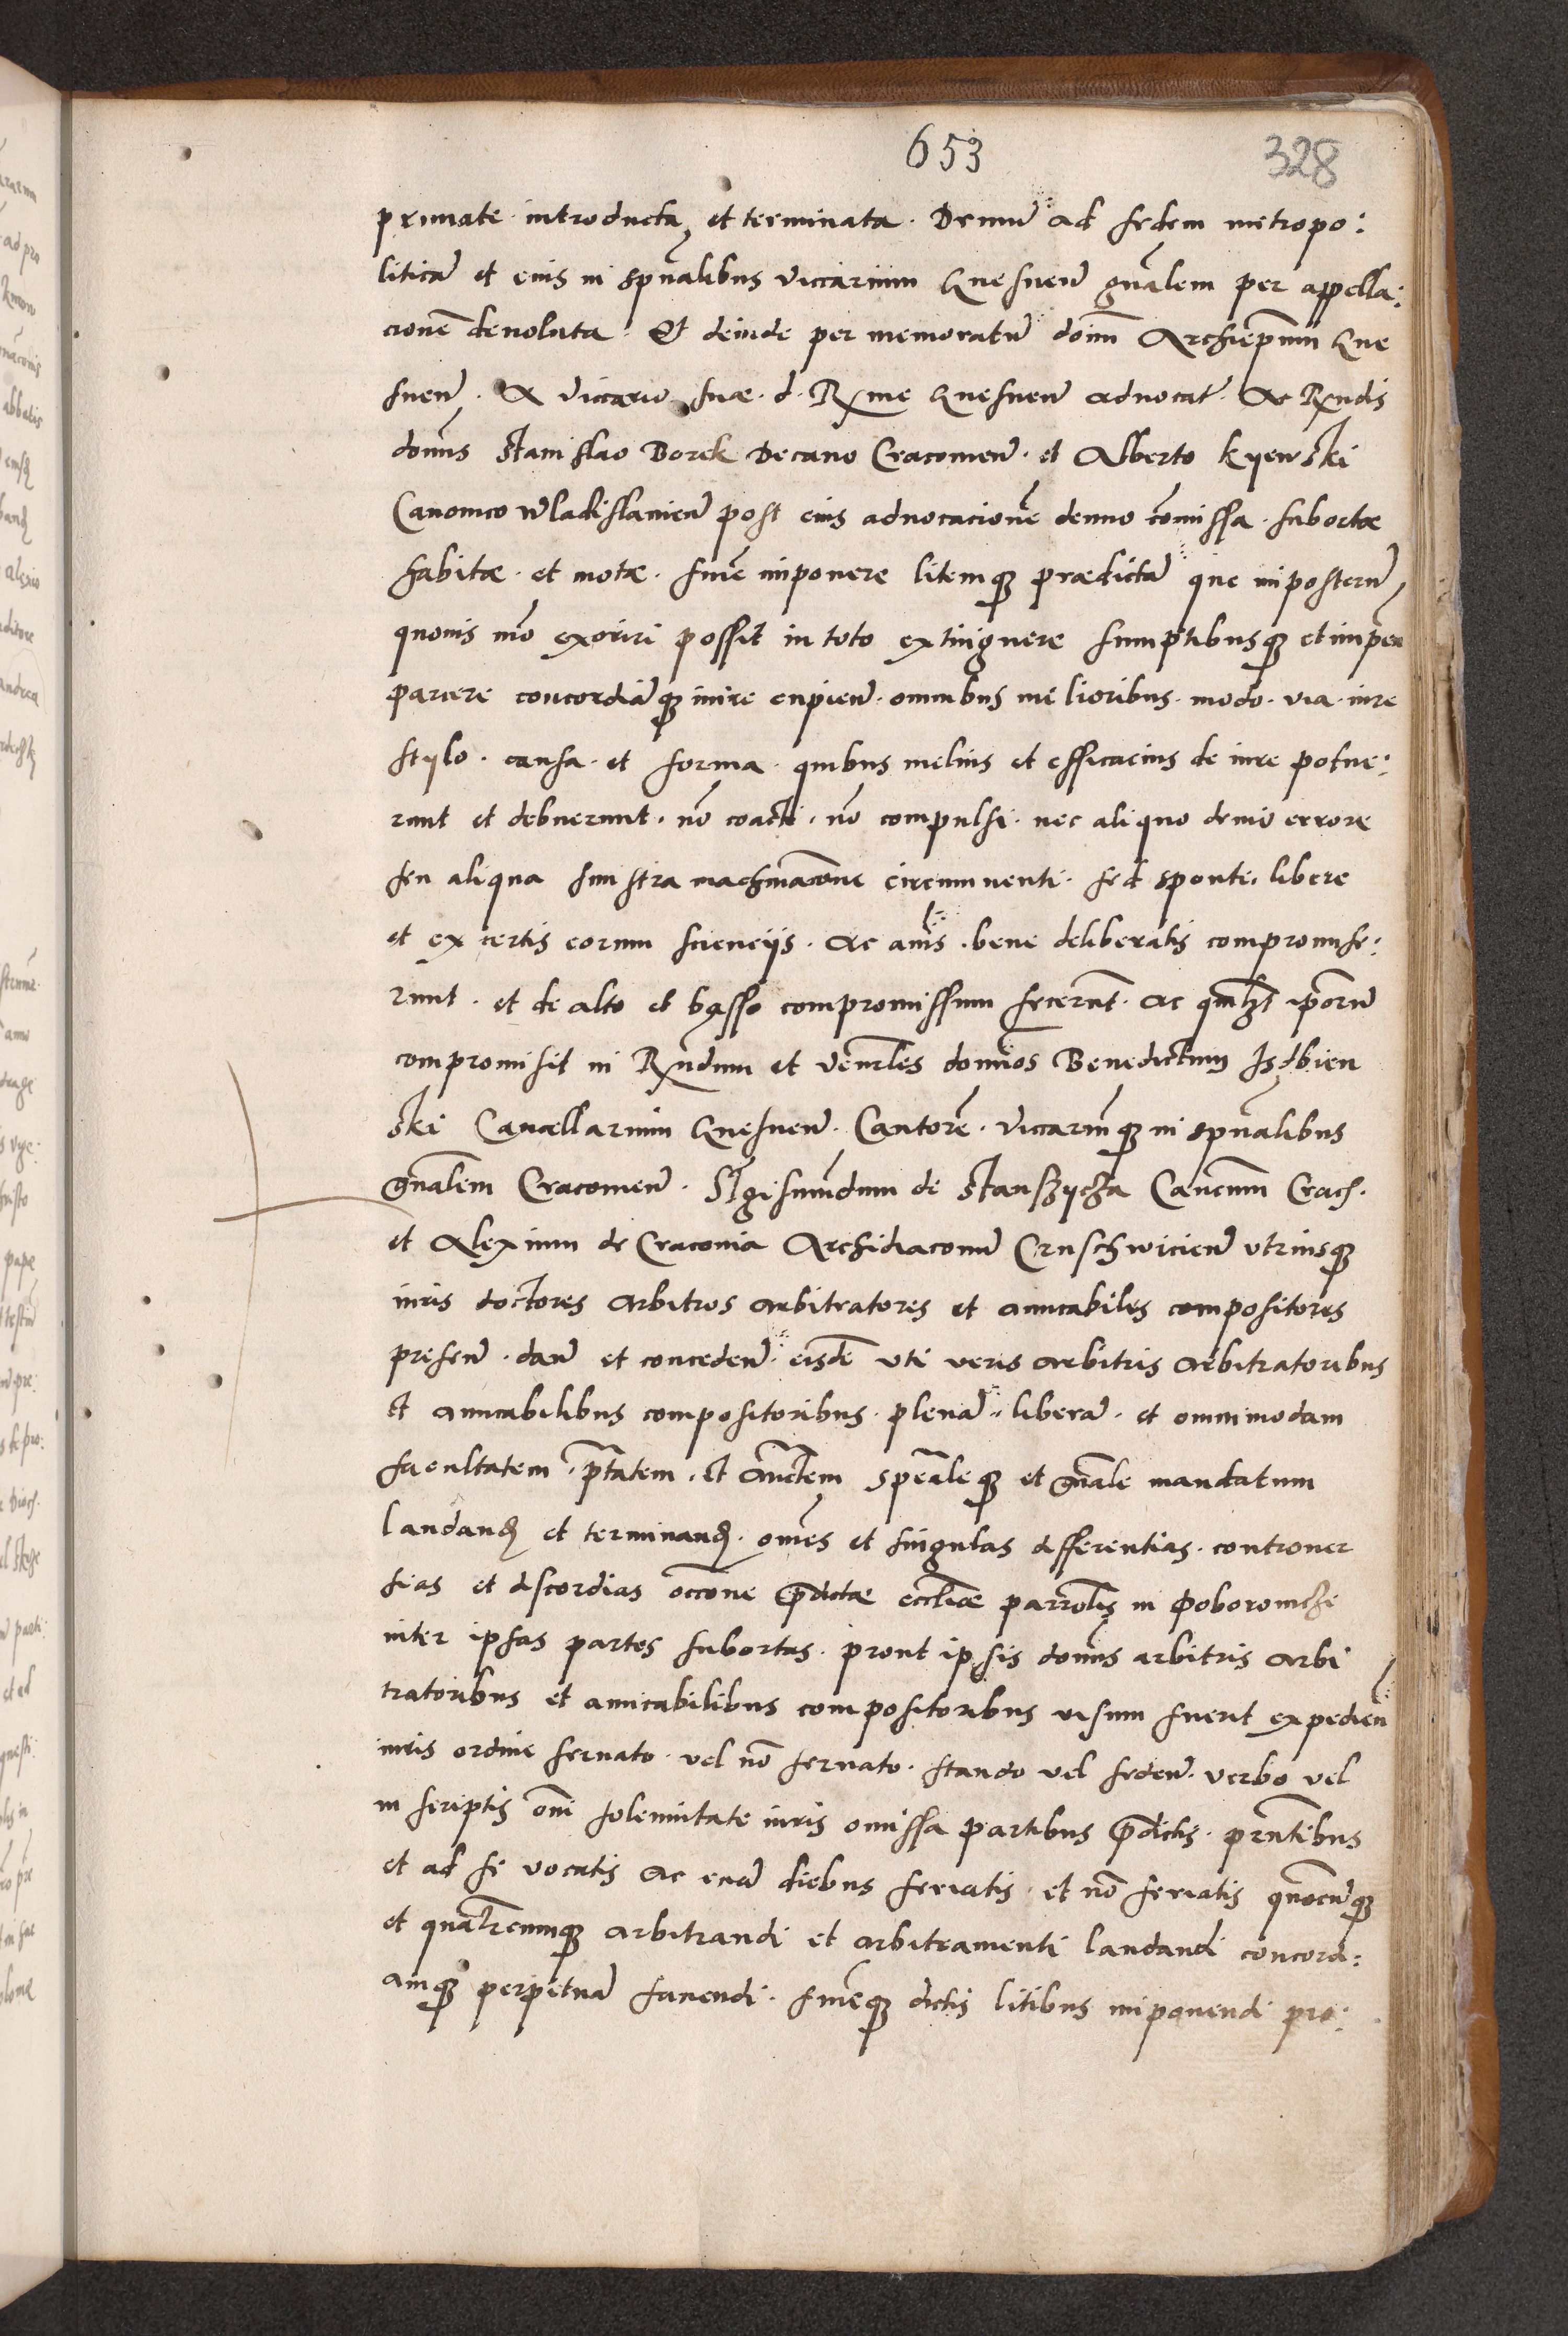 653
328
primate · introducta, et terminata · Demũ ad sedem metropo:
liticã et eius in spũalibus viccarium Gnesnen̄ gñalem per appella:
cionẽ deuoluta · Et deinde per memoratũ doim̃ Archiepũm Gne
snen̄ · A viccario suæ · d · Rx̃me Gnesnen̄ aduocat̃ · Ac Rxñdis
domĩs Stanislao Borek Decano Cracouien̄ · et Alberto Kyewski
Canonico wladislauien̄ post eius aduocacionẽ denuo cõmissa · subortæ
habitæ · et motæ · finẽ imponere litemq3 prædictã que imposterũ
quouis mõ exoriri possit in toto extinguere sumptibusq3 et impen̄
parcere concordiãq3 inire cupien̄ · omnibus melioribus · modo · via · iure
stylo · causa · et forma · quibus melius et efficacius de iure potue:
runt et debuerunt · nõ coacti · nõ compulsi · nec aliquo deuio errore
seu aliqua sinistra machinacõne circumuenti · sed sponte, libere
et ex certis eorum scienciis · Ac anĩs · bene deliberatis compromise:
runt · et de alto et basso compromissum fecerũt · Ac quilib3t ip̃orũ
compromisit in Rxñdum et Ven̄rles domĩos Benedictum Isdbien
ski Cancellarium Gnesnen̄ · Cantorẽ · Viccariũq3 in spũalibus
gñalem Cracouien̄ · Sigismũndum de Stanszycza Canc̃um Crach ·
et Alexium de Cracouia Archidiaconũ Cruschwicien̄ vtriusq3
iuris doctores Arbitros arbitratores et amicabiles compositores
presen̄ · dan̄ et conceden̄ · eisdẽ vti veris arbitris arbitratoribus
et amicabilibus compositoribus · plenã · liberã · et omnimodam
facultatem · p̃tatem · et auc̃tem sp̃ealeq3 et gñale mandatum
laudandj et terminandj · om̃es et singulas differentias · controuer
sias et discordias occõne p̃dictæ ecc̃liæ parro͡lis in Poborowicze
inter ipsas partes subortas · prout ipsis domĩs arbitris arbi
tratoribus et amicabilibus compositoribus visum fuerit expedien̄
iuris ordine seruato · vel nõ seruato · stando vel seden̄ · verbo vel
in scriptis om̃i solemnitate iuris omissa partibus p̃dictis · pr̃ntibus
et ad se vocatis Ac eciã diebus feriatis · et nõ feriatis quõcũq3
et qual̃rcumq3 arbitrandi et arbitramenti laudandi concordi:
amq3 perpetuã faciendi · finẽq3 dictis litibus imponendi pro: